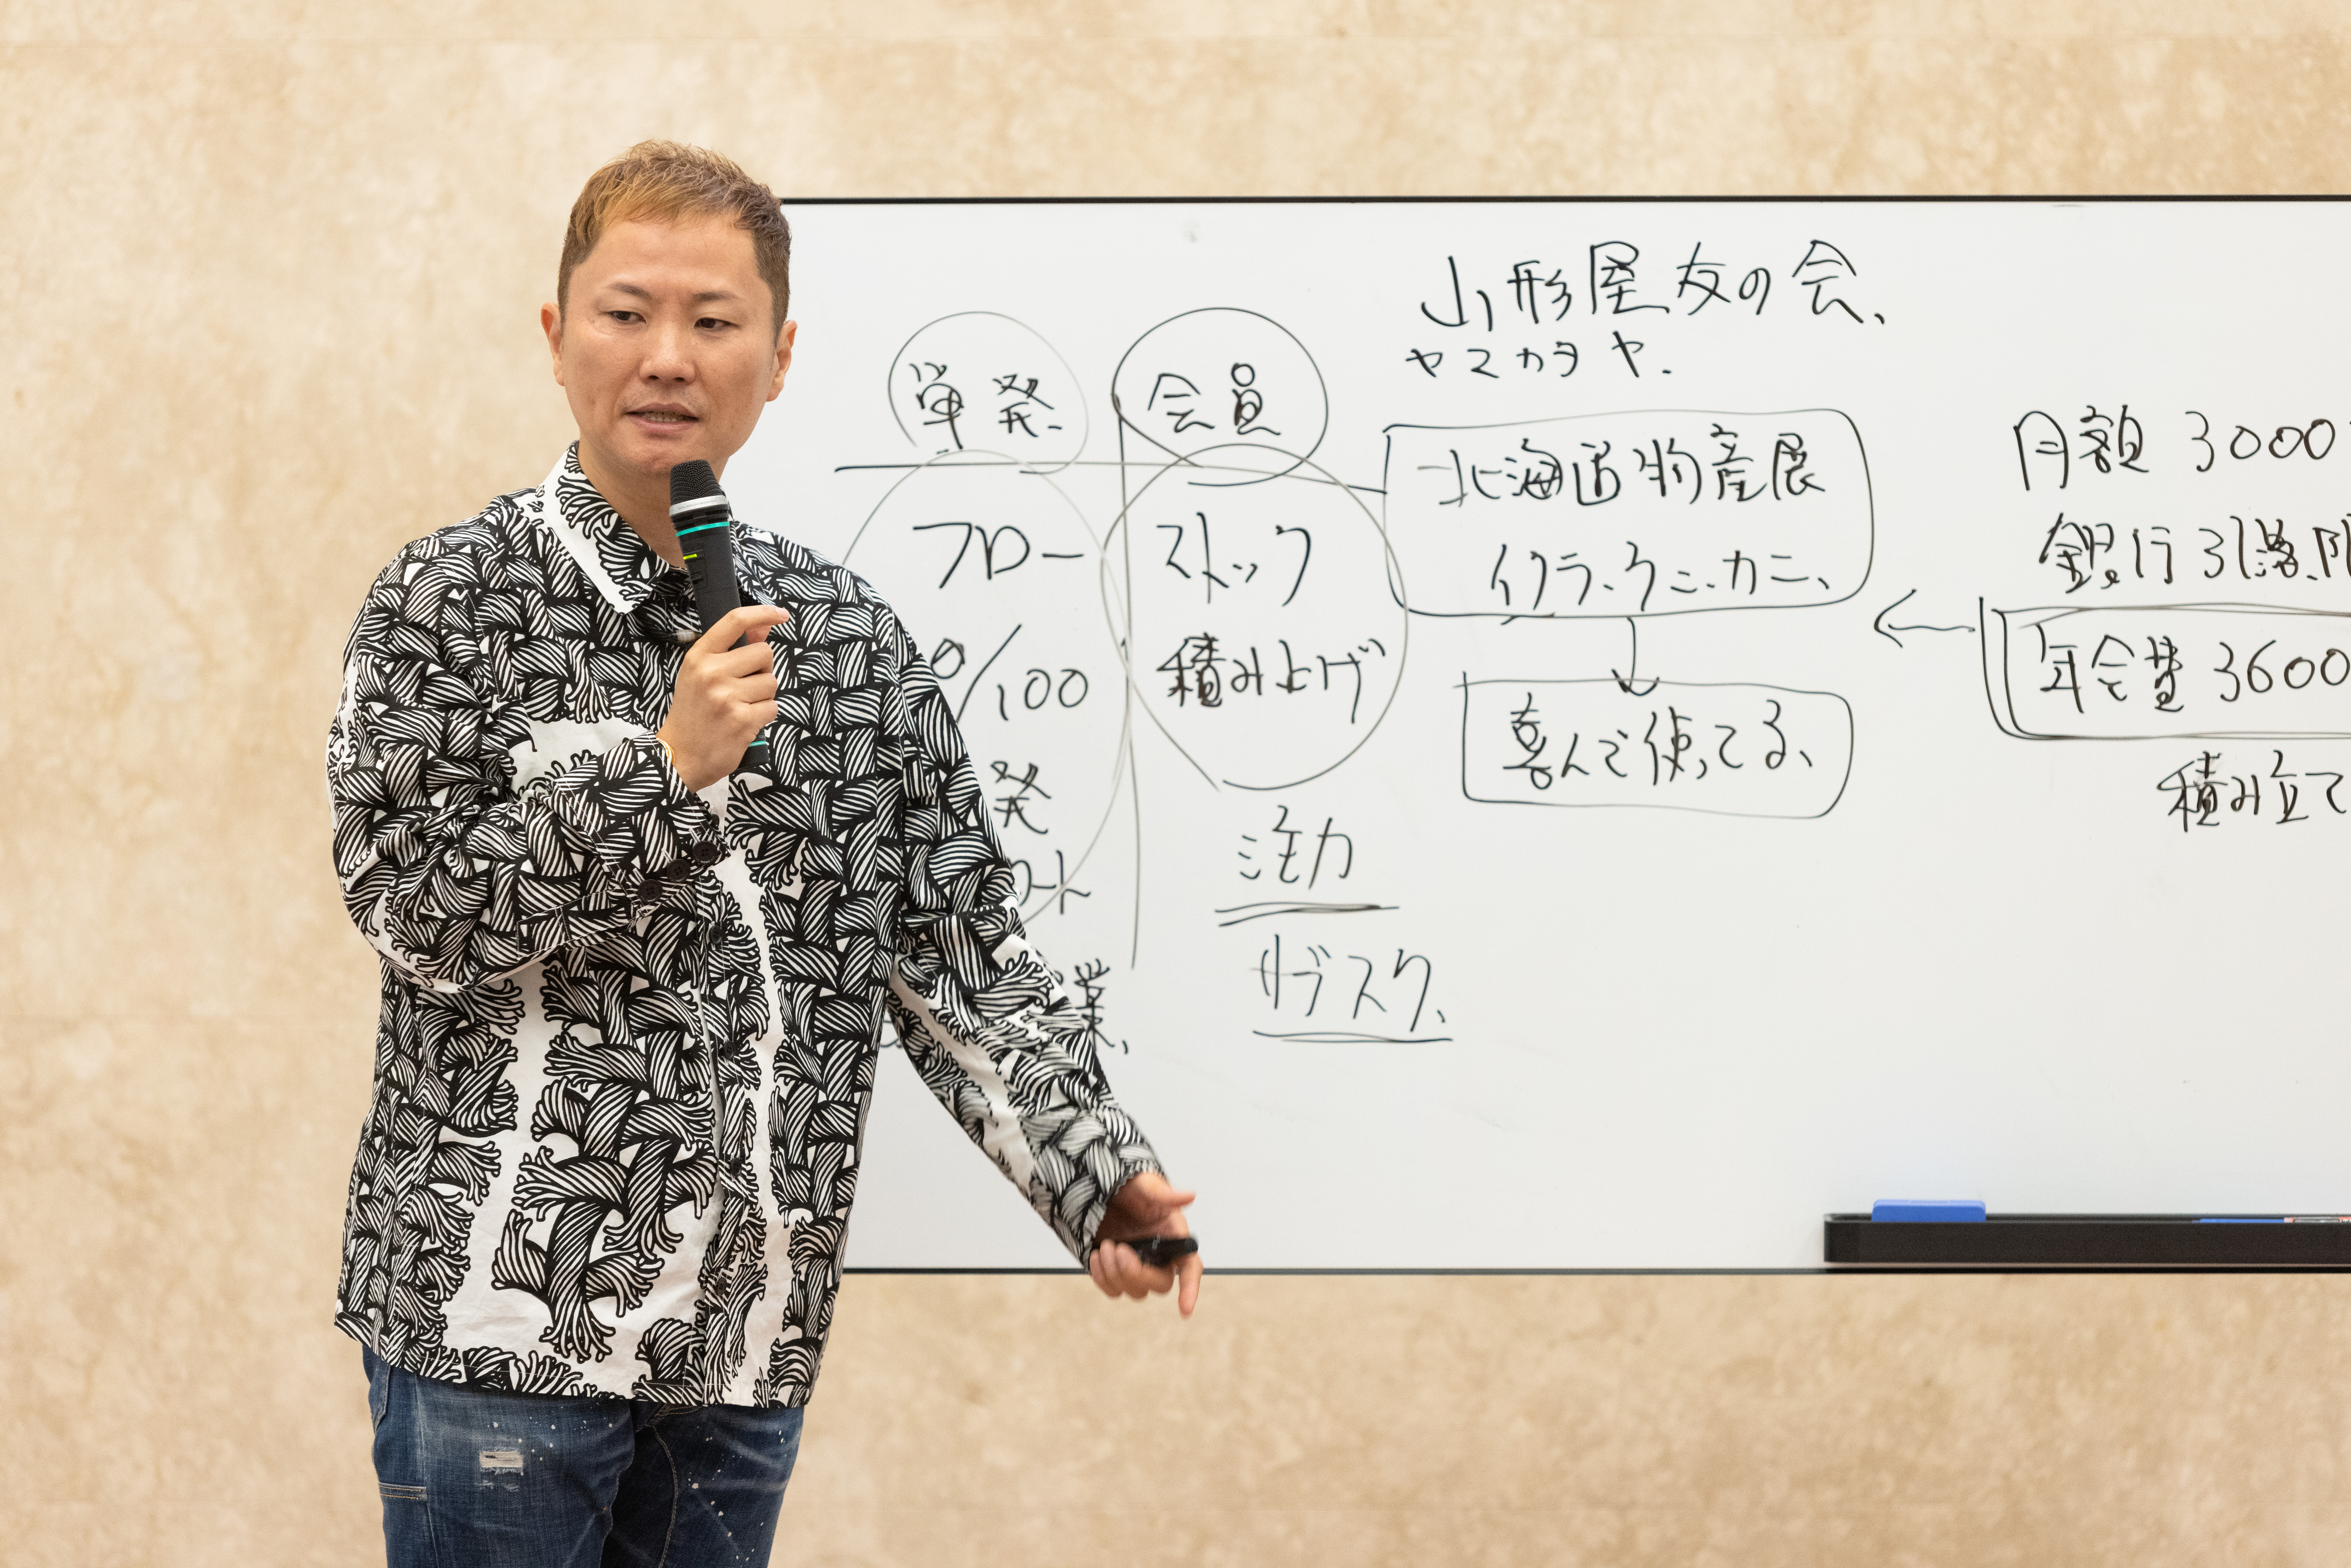 単発
会員
フロー
ストック
0/100
積み上げ
発
注力
サブスク、
山形屋友の会、
ヤマカタヤ.
北海道物産展
イクラ、ウニ、カニ、
喜んで使ってる、
月額 3000
銀行引落
年会費 3600
積み立て